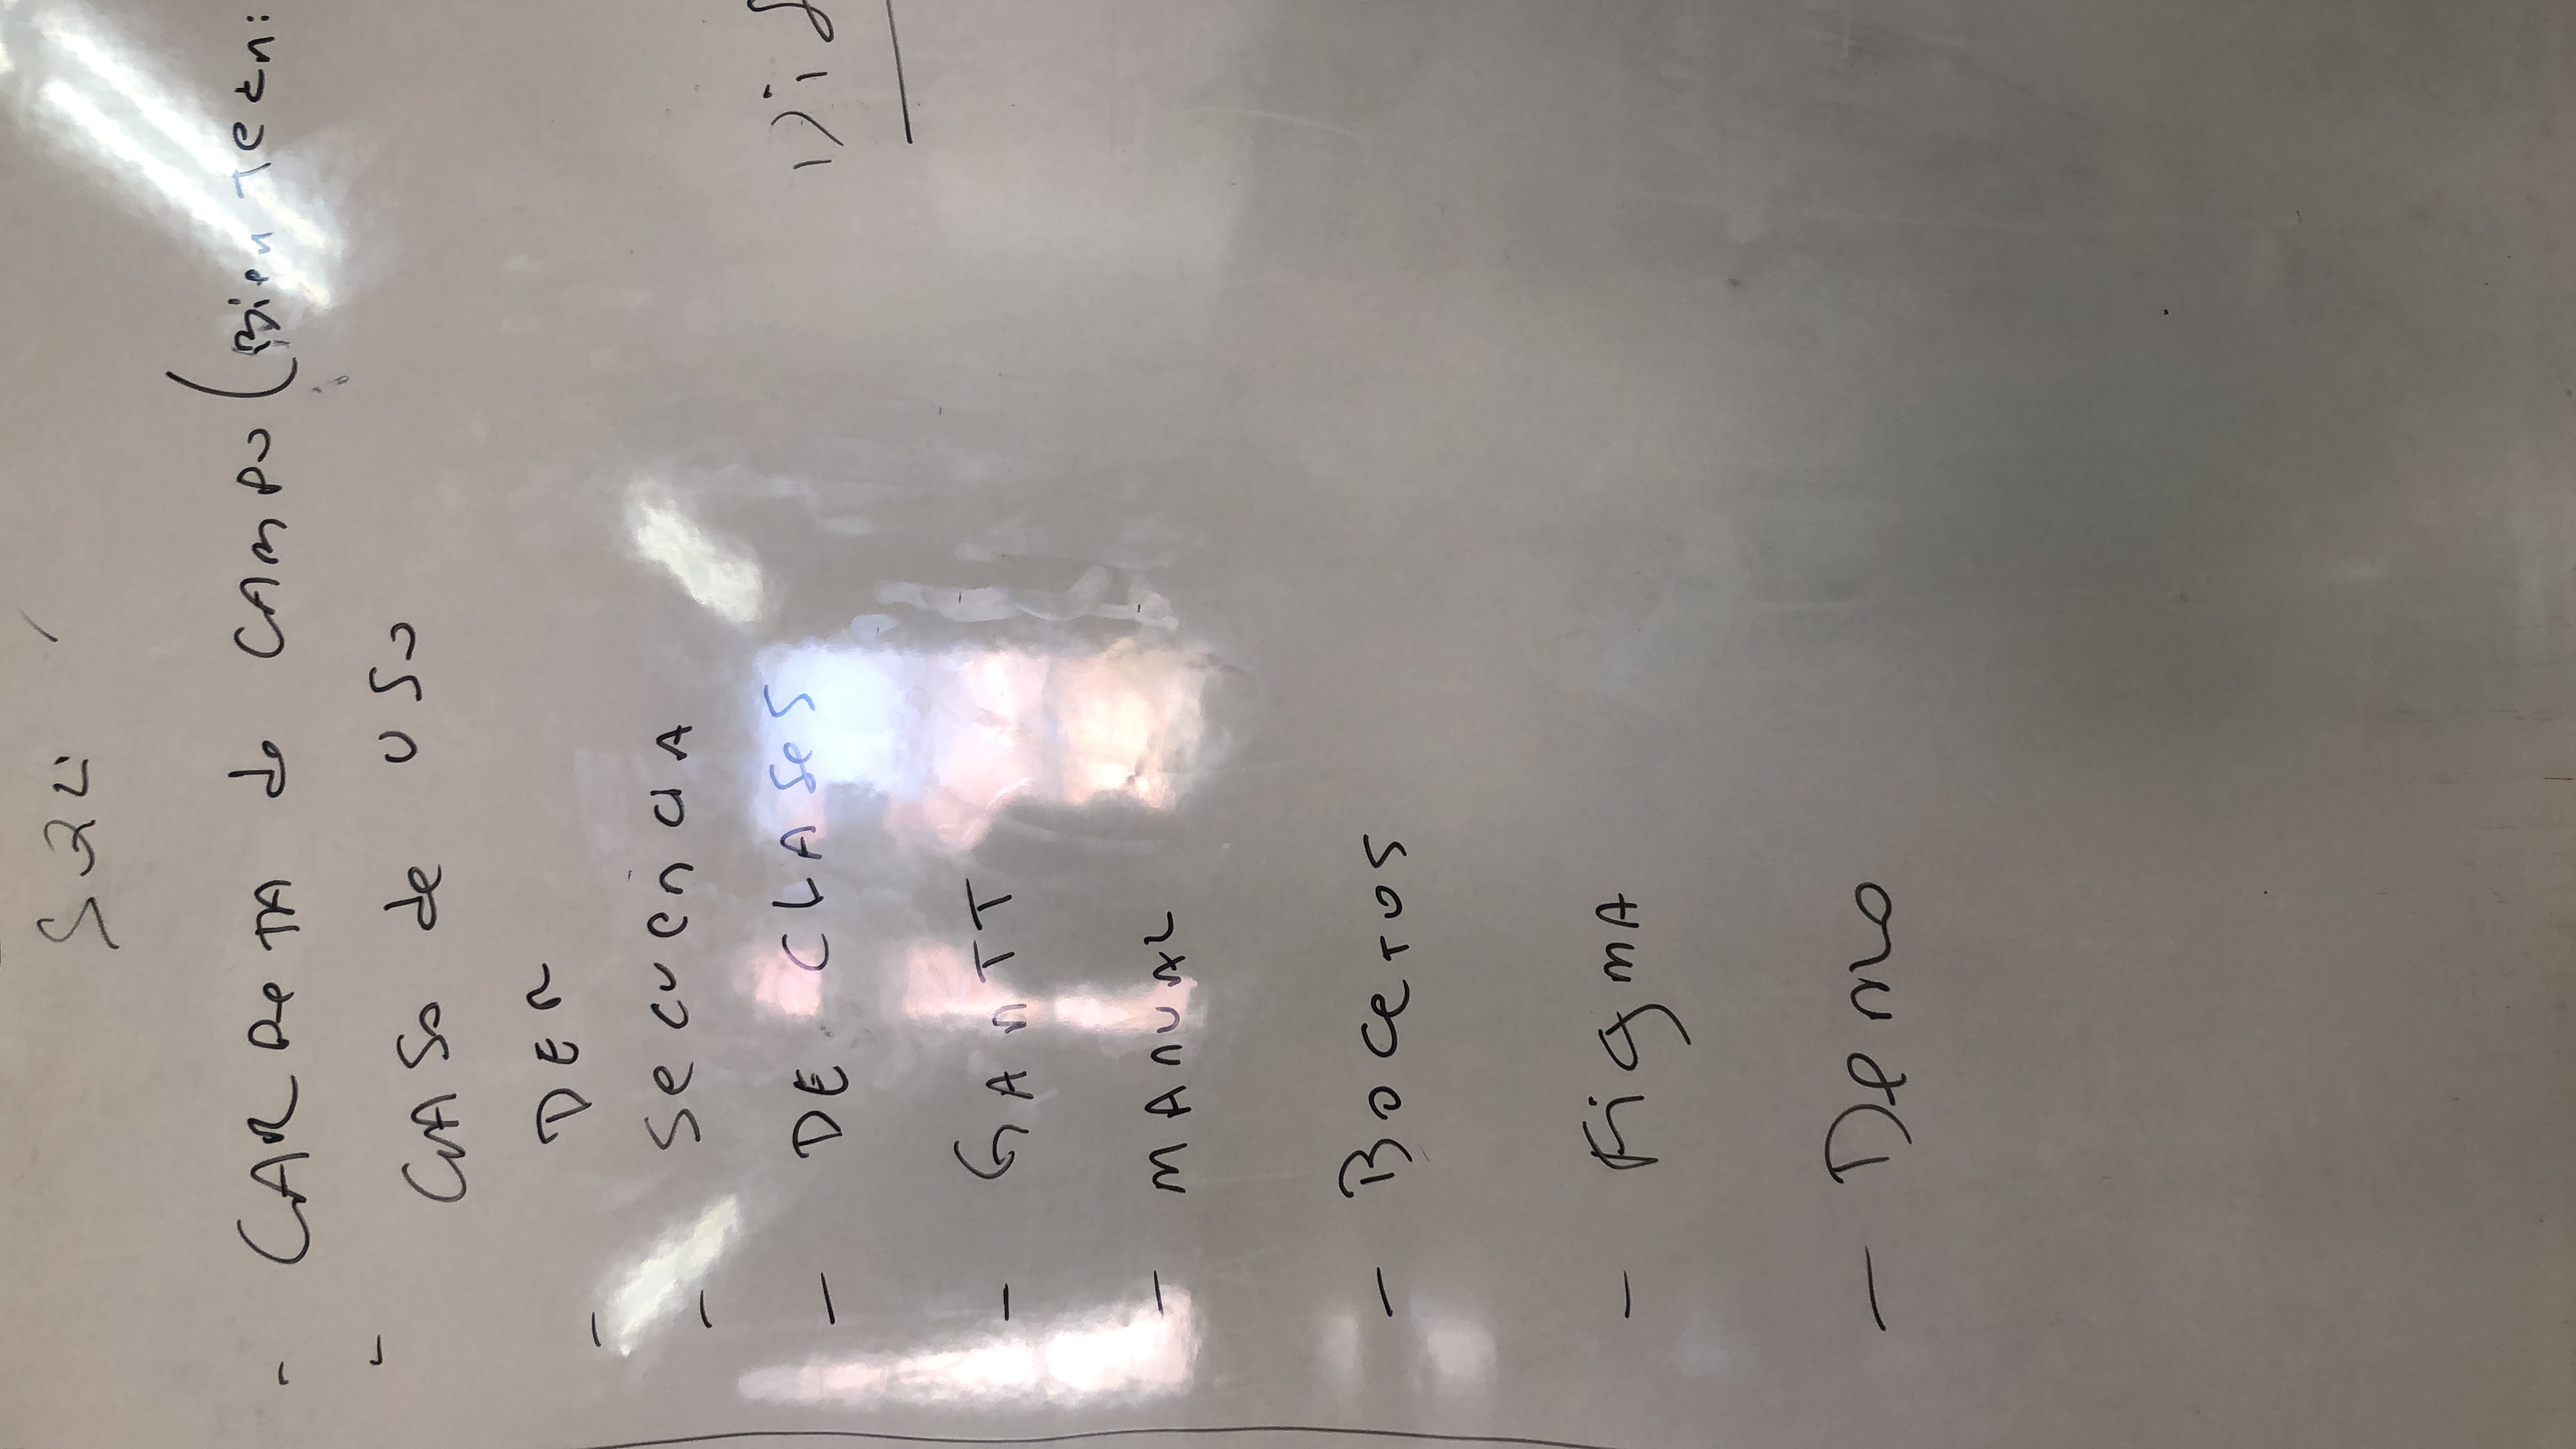 SQL
- CARPeTA de CAMPO (Bien Tecni
- CASO de USO
- DER
- Secuencia
- DE CLASeS
- GAnTT
- MAnUAL
- BoceTos
- FigmA
- Demo